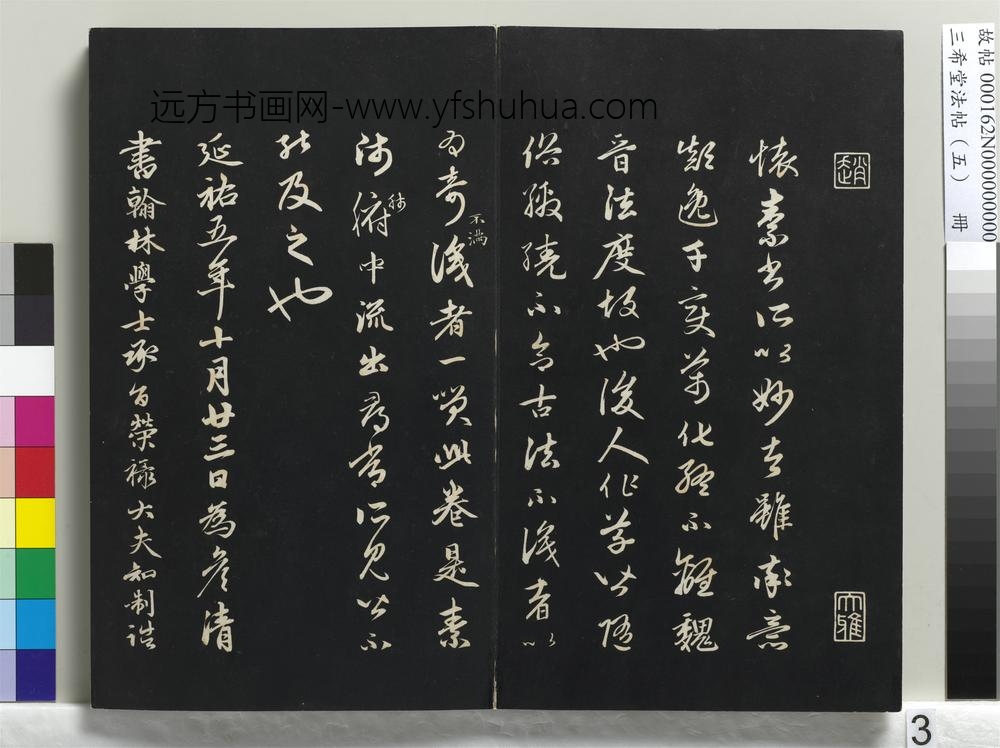 远方书画网-www.yfshuhua.com
趙
大雅
懷素書所以妙者雖率意
顛逸千變萬化終不離魏
晉法度故也後人作草皆隨
俗繳繞不合古法不識者以
為奇不滿識者一笑此卷是素
師肺腑中流出尋常所見皆不
能及之也
延祐五年十月廿三日為彥清
書翰林學士承旨榮祿大夫知制誥
故帖 000162N000000000
三希堂法帖（五） 冊
3